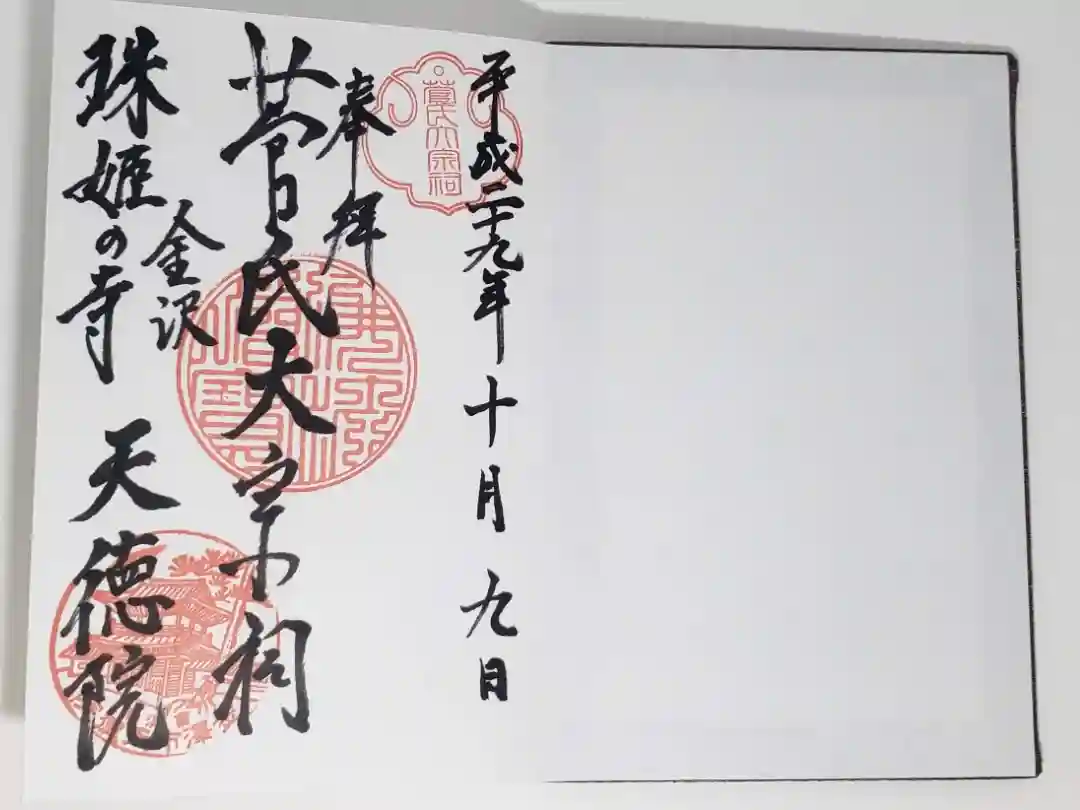 平成二十九年十月九日
菅氏大宗祠
奉拝
菅氏大宗祠
金沢
珠姫の寺 天徳院